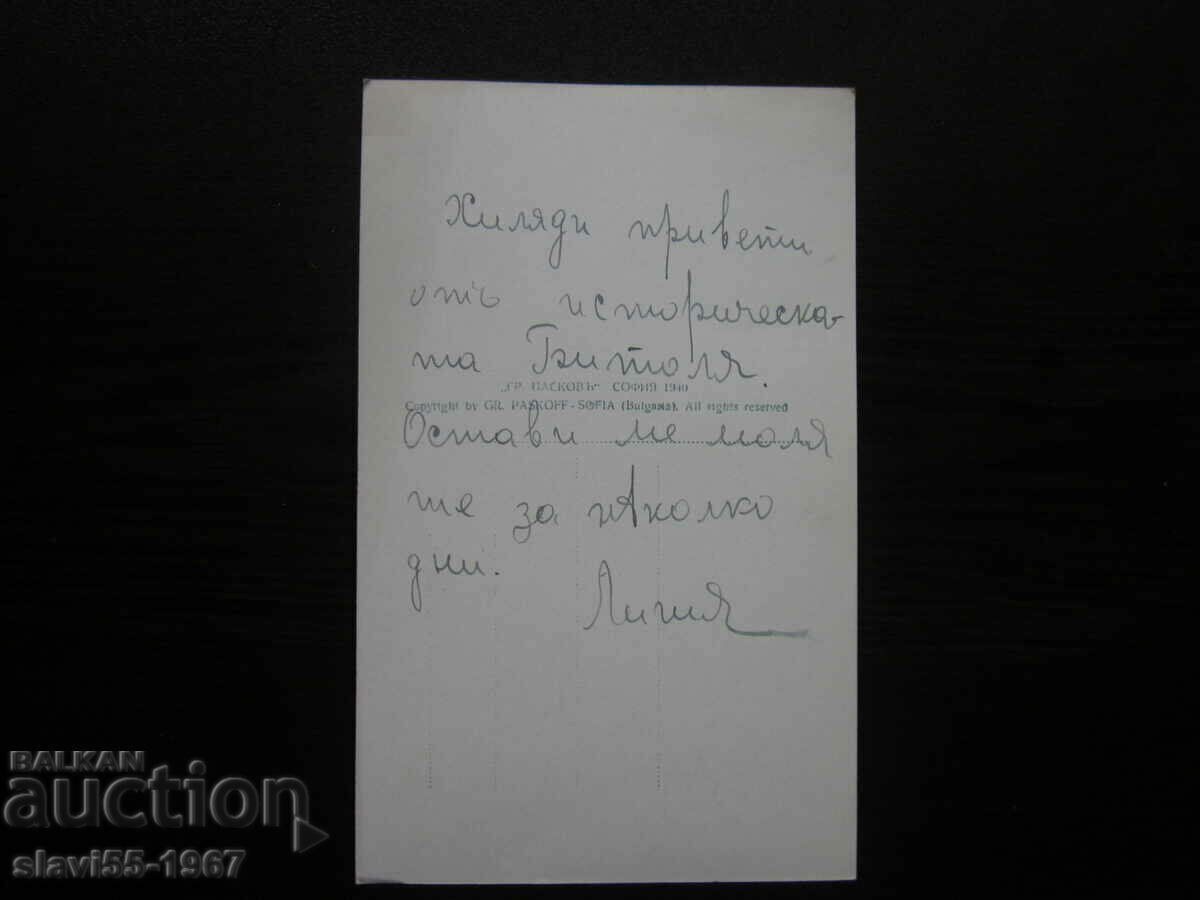 Хиляди привети
отъ историческа-
та Битоля.
„ГР. ПАСКОВЪ" СОФИЯ 1940
Copyright by GR. PASKOFF - SOFIA (Bulgaria). All rights reserved
Остави ме моля
те за нѣколко
дни.
BALKAN
auction
slavi55-1967